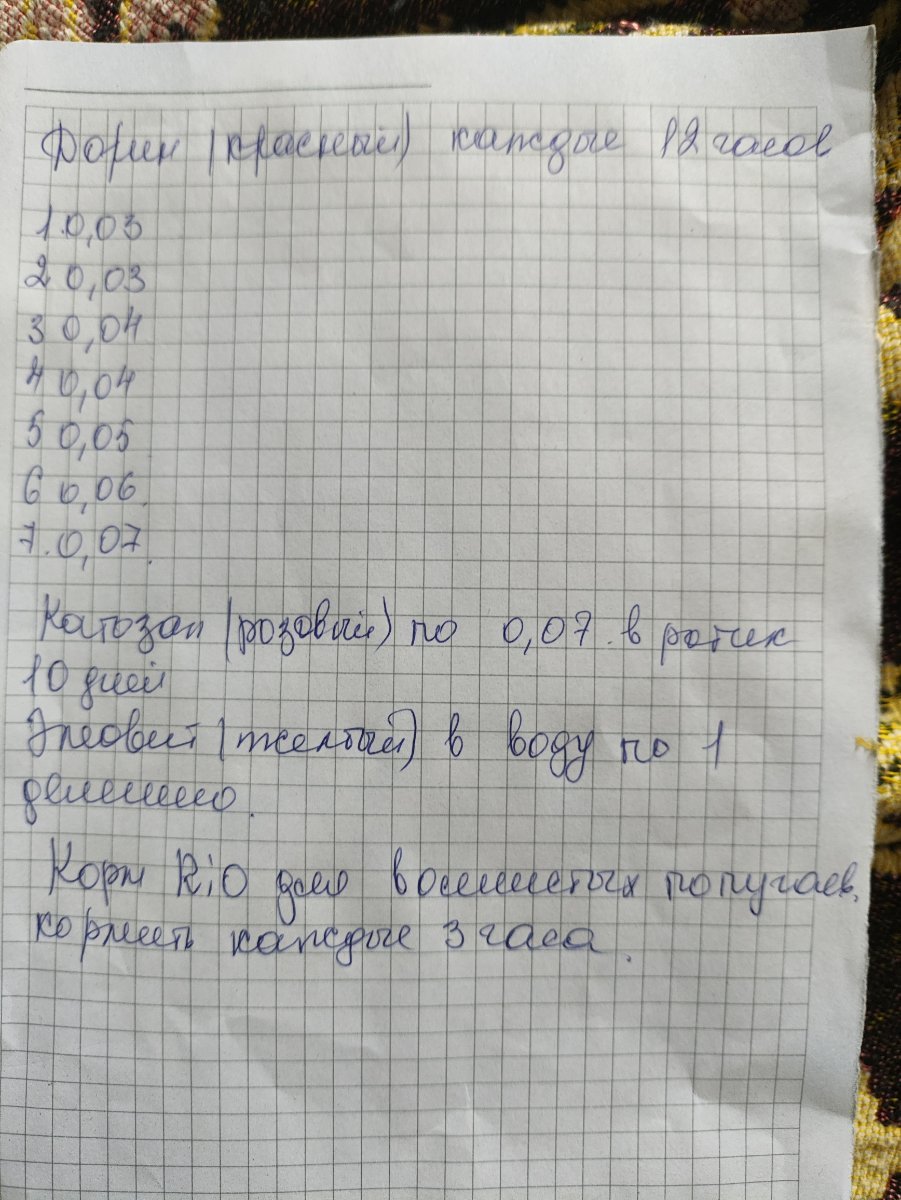 Дорин (красный) каждые 12 часов
1.0,03
2 0,03
3 0,04
4 0,04
5 0,05
6 0,06.
7. 0,07.
Катозал (розовый) по 0,07 в ротик
10 дней
Элеовит (желтый) в воду по 1
делению.
Корм RiO для волнистых попугаев,
кормить каждые 3 часа.